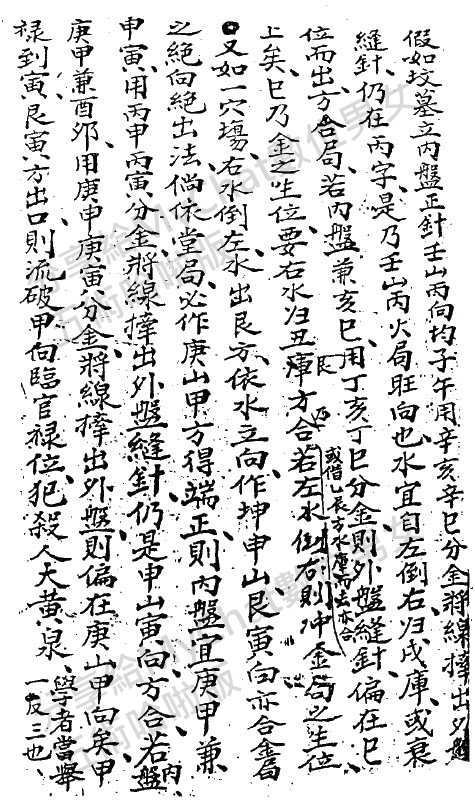 假如坟墓立內盤正針壬山丙向均子午用辛亥辛巳分金將線摔出外盤
縫針仍在丙字是乃壬山丙火局旺向也水宜自左倒右归戍庫或衰
位而出方合局若內盤兼亥巳用丁亥丁巳分金則外盤縫針偏在巳
上矣巳乃金之生位要右水归丑庫方合若左水倒右則冲金局之生位
或借艮方水庫而去亦合
又如一穴塲右水倒左水出艮方依水立向作坤申山艮寅向亦合金局
之絕向絕出法倘依堂局必作庚山甲方得端正則內盤宜庚甲兼
申寅用丙申丙寅分金將線摔出外盤縫針仍是申山寅向方合若內盤
庚甲兼酉夘用庚申庚寅分金將線摔出外盤則偏在庚山甲向矣甲
禄到寅艮寅方出口則流破甲向臨官禄位犯殺人大黃泉學者當舉
一反三也